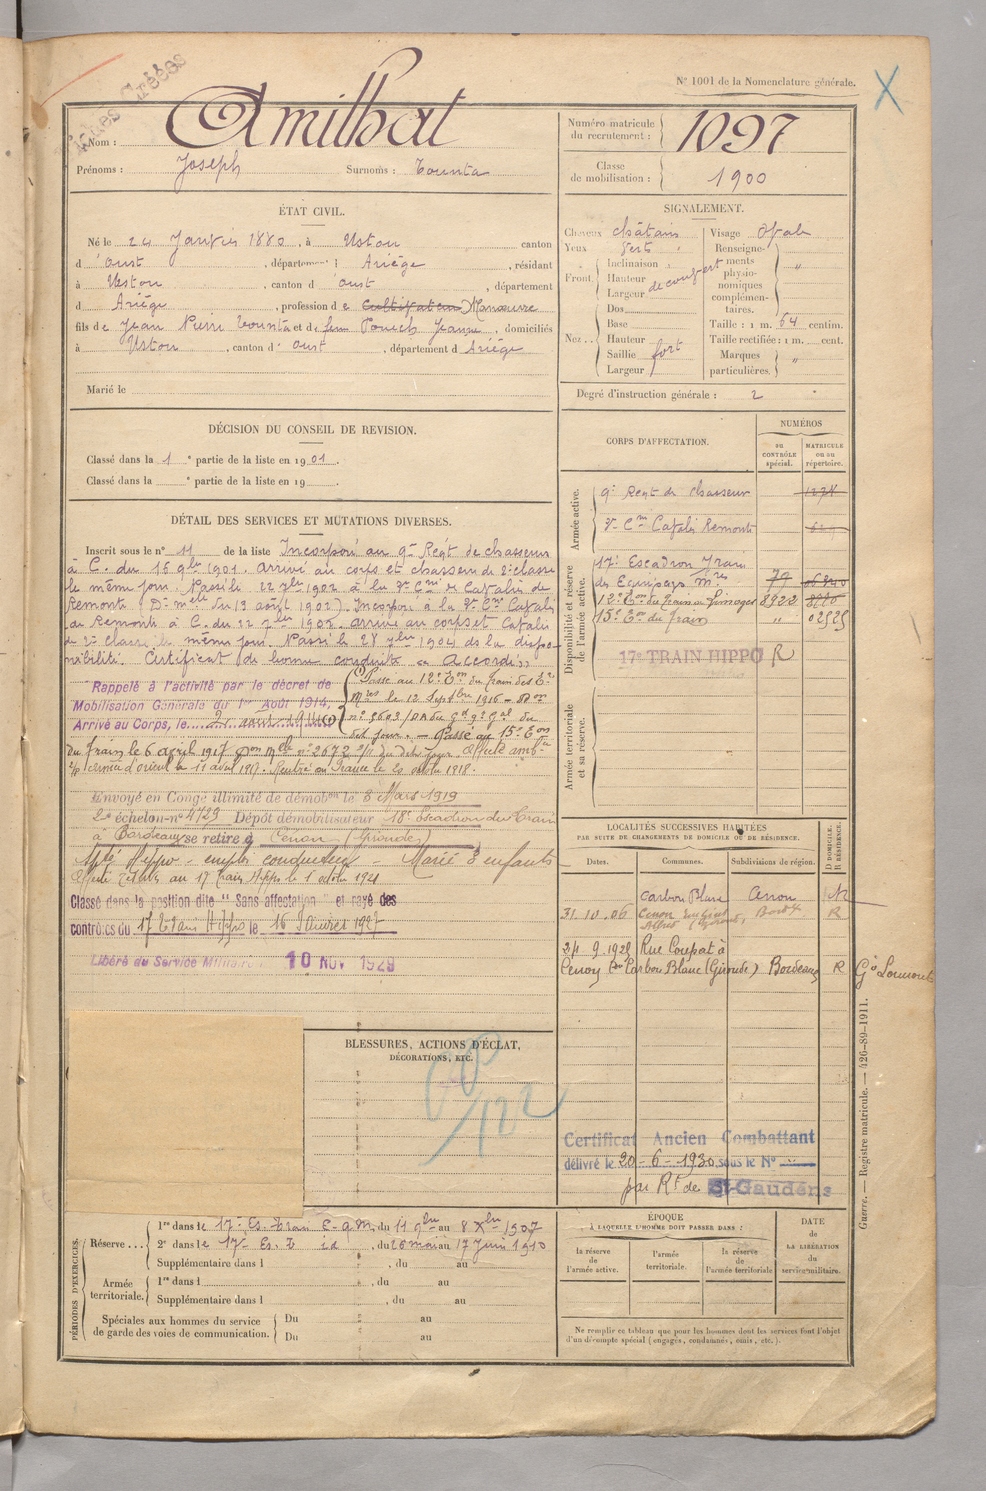 N° 1001 de la Nomenclature générale.
Nom : Amilhat
Prénoms : Joseph Surnoms : Tounta
Numéro matricule du recrutement : 1097
Classe de mobilisation : 1900
ÉTAT CIVIL.
Né le 24 Janvier 1880, à Ustou canton
d'Oust, département d Ariège, résidant
à Ustou, canton d'Oust, département
d Ariège, profession de Cultivateur Manœuvre
fils de Jean Pierre Tounta et de feue Pouech Jeanne, domiciliés
à Ustou, canton d'Oust, département d Ariège
Marié le
SIGNALEMENT.
Cheveux châtains
Yeux verts
Front Inclinaison
Hauteur découvert
Largeur
Nez Dos
Base
Hauteur
Saillie fort
Largeur
Visage Ovale
Renseignements physionomiques complémentaires. "
Taille : 1 m. 64 centim.
Taille rectifiée : 1 m. cent.
Marques particulières. "
Degré d'instruction générale : 2
DÉCISION DU CONSEIL DE REVISION.
Classé dans la 1e partie de la liste en 1901.
Classé dans la e partie de la liste en 19
DÉTAIL DES SERVICES ET MUTATIONS DIVERSES.
Inscrit sous le n° 11 de la liste Incorporé au 9e Regt de chasseurs
à C. du 16 9bre 1901. arrivé au corps et chasseur de 2e classe
le même jour. Passé le 22 7bre 1902 à la 3e Cie de Cavaliers de
Remonte (Don mlle du 13 août 1902). Incorporé à la 3e Cie Cavaliers
de Remonte à C. du 22 7bre 1902. arrivé au corps et Cavalier
de 2e classe le même jour. Passé le 28 7bre 1904 ds la dispo-
nibilité. Certificat de bonne conduite "Accordé"
Rappelé à l'activité par le décret de
Mobilisation Générale du 1er Août 1914,
Arrivé au Corps, le 2 août 1914
Passé au 12e Eon du Train des Eq
mres le 12 Septbre 1916
n° 3603
dit jour. — Passé au 15e Eon
du Train le 6 avril 1917 n° 2672
armée d'orient le 11 avril 1917. Rentré en France le 20 octobre 1918.
Envoyé en Congé illimité de démobon le 8 Mars 1919
2e échelon n° 4723 Dépôt démobilisateur 18e Escadron du Train
à Bordeaux se retire à Cenon (Gironde)
Hippo — emploi conducteur — Marié 3 enfants
au 17e Train Hippo le 1er octobre 1921
Classé dans la position dite "Sans affectation" et rayé des
contrôles du 17e Train Hippo le 16 Janvier 1927
Libéré du Service Militaire 10 NOV 1929
CORPS D'AFFECTATION.
NUMÉROS
au CONTRÔLE spécial.
MATRICULE ou au répertoire.
Armée active.
9e Regt de chasseurs 1274
3e Cie Cavaliers Remonte
Disponibilité et réserve de l'armée active.
17e Escadron Train
des Equipages mres 79
12e Eon du Train des Equipages 8922
15e Eon du Train " 02525
17e TRAIN HIPPO R
Armée territoriale et sa réserve.
LOCALITÉS SUCCESSIVES HABITÉES
PAR SUITE DE CHANGEMENTS DE DOMICILE OU DE RÉSIDENCE.
Dates. Communes. Subdivisions de région.
D DOMICILE. R RÉSIDENCE.
Carbon Blanc Cenon
31.10.06 Cenon (Gironde) Bordx R
24.9.1928 Rue Coupat à
Cenon Con Carbon Blanc (Gironde) Bordeaux R
BLESSURES, ACTIONS D'ÉCLAT,
DÉCORATIONS, ETC.
Certificat Ancien Combattant
délivré le 20-6-1930, sous le N°
par Rt de St-Gaudens
Guerre. — Registre matricule. — 426-89-1911.
PÉRIODES D'EXERCICES.
Réserve 1re dans le 17e Es. Train, du 11 9bre au 8 Xbre 1907
2e dans le 17e Es. T id, du 26 mai au 17 Juin 1910
Supplémentaire dans l , du au
Armée territoriale. 1re dans l , du au
Supplémentaire dans l , du au
Spéciales aux hommes du service de garde des voies de communication. Du au
Du au
ÉPOQUE
À LAQUELLE L'HOMME DOIT PASSER DANS :
la réserve de l'armée active.
l'armée territoriale.
la réserve de l'armée territoriale
DATE DE LA LIBÉRATION du service militaire.
Ne remplir ce tableau que pour les hommes dont les services font l'objet
d'un décompte spécial (engagés, condamnés, omis, etc.).